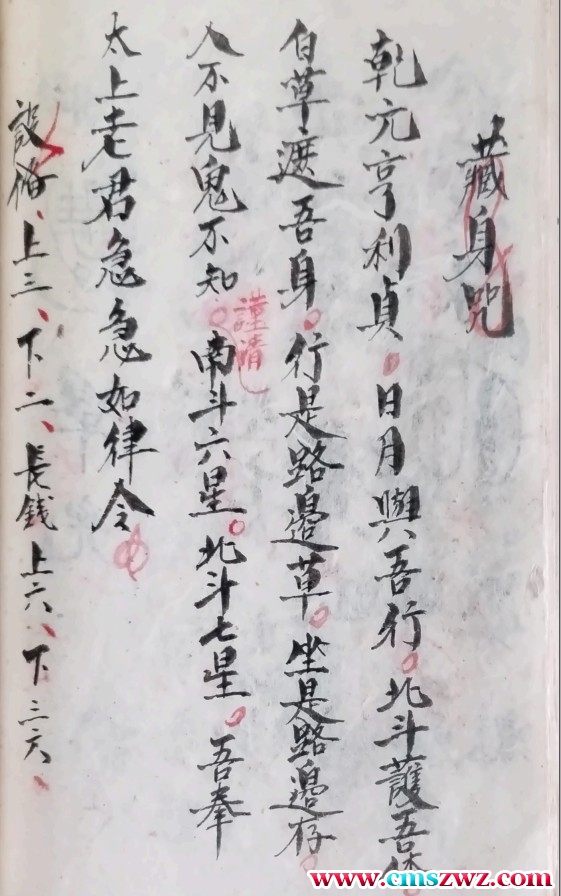 藏身咒
乾元亨利貞。日月與吾行。北斗護吾体
白草遮吾身。行是路邊草。坐是路邊存。
人不見鬼不知。謹請南斗六星。北斗七星。吾奉
太上老君急急如律令
上三、下二、長錢上六、下三六、
www.cmszwz.com